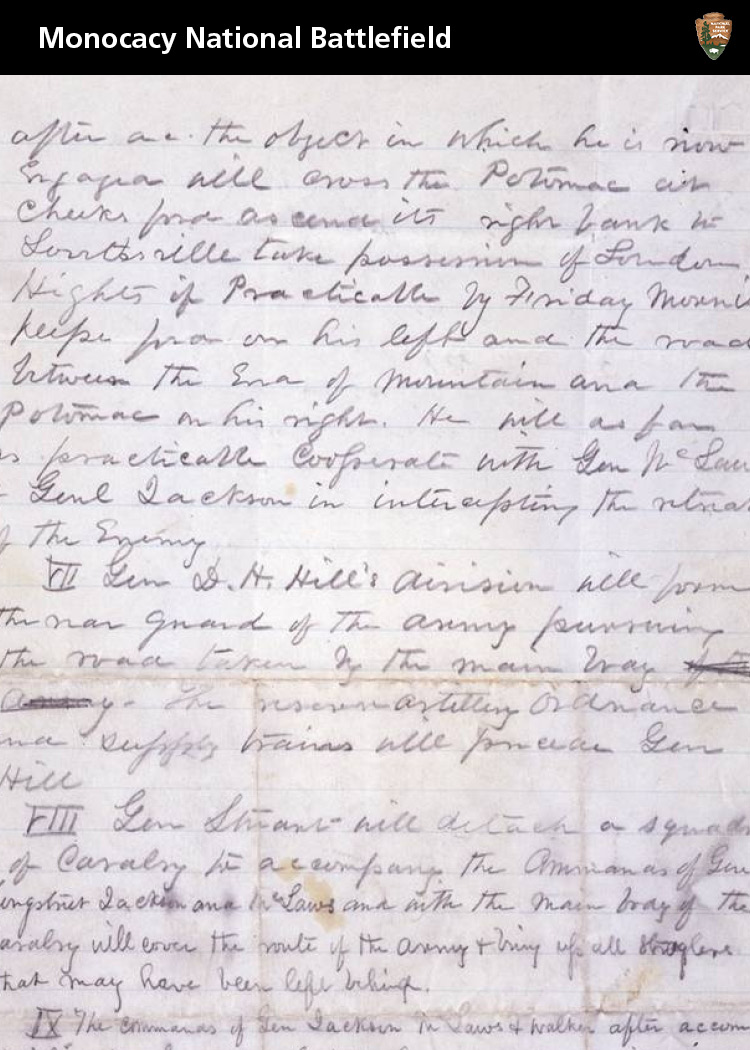 Monocacy National Battlefield
after acc. the object in which he is now
Engaged will cross the Potomac at
Cheeks ford ascend its right bank to
Lovettsville take possession of Loudon
Hights if Practicable by Friday Morni
keeps ford on his left and the road
between the End of Mountain and the
Potomac on his right. He will as far
as practicable Cooperate with Gen McLaw
Genl Jackson in intercepting the retrea
of the Enemy
VII Gen D. H. Hill's division will form
the rear guard of the army pursuing
the road taken by the main body
army. The reserve artillery Ordnance
and supply trains will precede Gen
Hill
VIII Gen Stuart will detach a squadr
of Cavalry to accompany the Commands of Gen
Longstreet Jackson and McLaws and with the main body of the
Cavalry will cover the route of the army & bring up all straglers
that may have been left behind.
IX The commands of Gen Jackson McLaws & Walker after accom